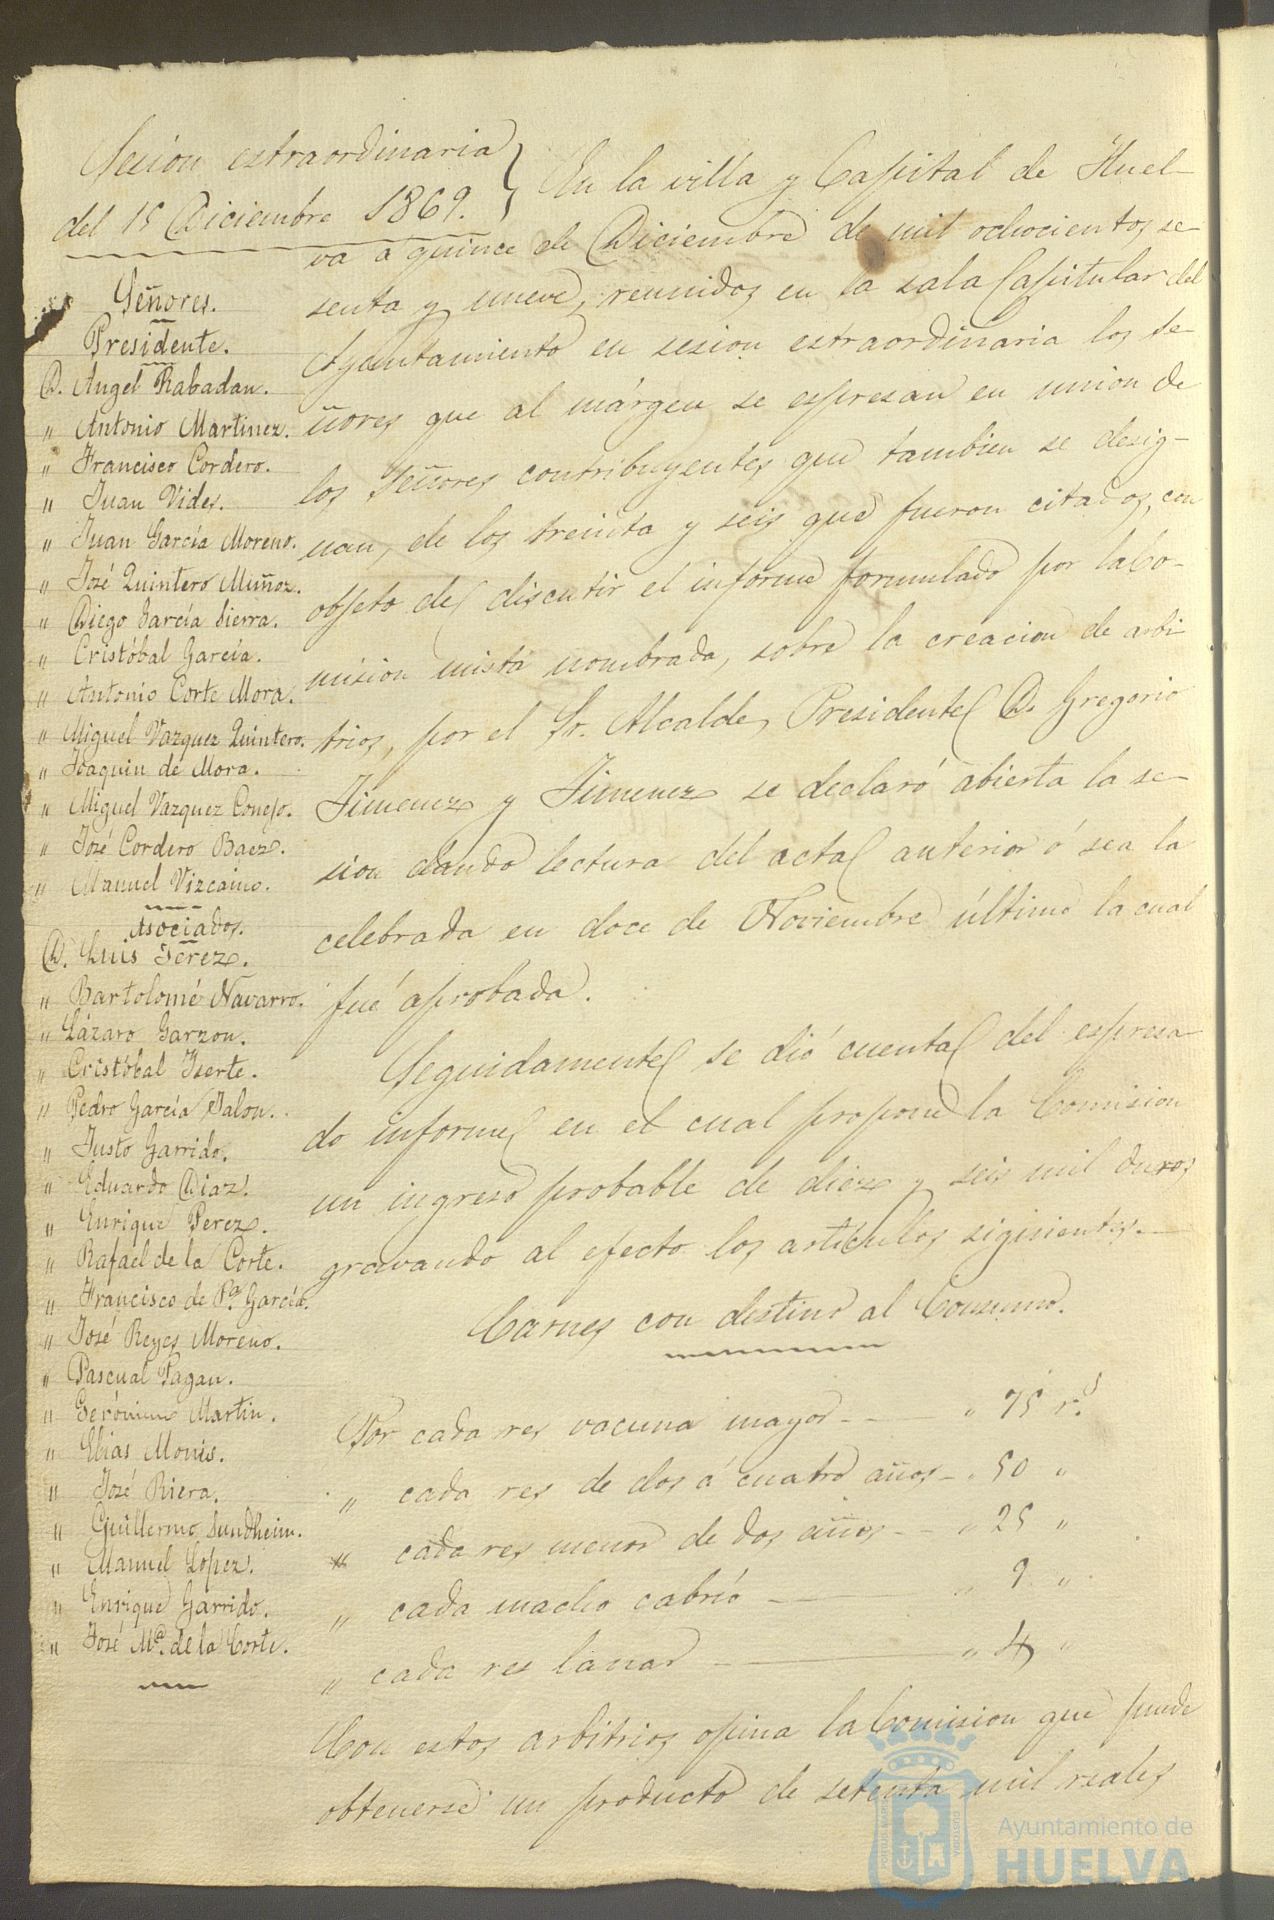 Sesion extraordinaria
del 15 Diciembre 1869.
Señores.
Presidente.
D. Angel Rabadan.
" Antonio Martinez.
" Francisco Cordero.
" Juan Vides.
" Juan García Moreno.
" José Quintero Muñoz.
" Diego García Sierra.
" Cristóbal García.
" Antonio Corte Mora.
" Miguel Vazquez Quintero.
" Joaquin de Mora.
" Miguel Vazquez Conejo.
" José Cordero Baez.
" Manuel Vizcaino.
Asociados.
D. Luis Perez.
" Bartolomé Navarro.
" Lázaro Garzon.
" Cristóbal Iserte.
" Pedro García Jalon.
" Justo Garrido.
" Eduardo Diaz.
" Enrique Perez.
" Rafael de la Corte.
" Francisco de Pª. García.
" José Reyes Moreno.
" Pascual Pagan.
" Gerónimo Martin.
" Elias Monis.
" José Riera.
" Guillermo Sundheim.
" Manuel Lopez.
" Enrique Garrido.
" José Mª. de la Corte.
En la villa y Capital de Huel-
va a quince de Diciembre de mil ochocientos se-
senta y nueve, reunidos en la sala Capitular del
Ayuntamiento en sesion extraordinaria los Se-
ñores que al márgen se espresan en union de
los Señores contribuyentes que tambien se desig-
nan, de los treinta y seis que fueron citados, con
objeto de discutir el informe formulado por la Co-
mision mista nombrada, sobre la creacion de arbi
trios, por el Sr. Alcalde, Presidente D. Gregorio
Jimenez y Jimenez se declaró abierta la se-
sion dando lectura del acta anterior ó sea la
celebrada en doce de Noviembre último la cual
fué aprobada.
Seguidamente se dió cuenta del espresa-
do informe en el cual propone la Comision
un ingreso probable de diez y seis mil duros
gravando al efecto los artículos sigisientes.
Carnes con destino al Consumo.
Por cada res vacuna mayor - " 75 r.s
" cada res de dos á cuatro años - " 50 "
" cada res menor de dos años - " 25 "
" cada macho cabrío - " 9 "
" cada res lanar - " 4 "
Con estos arbitrios opina la Comision que puede
obtenerse un producto de setenta mil reales
Ayuntamiento de
HUELVA